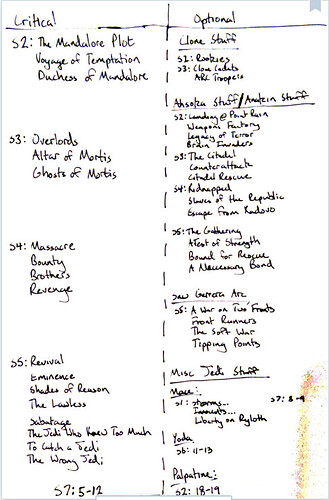 Critical
S2: The Mandalore Plot
Voyage of Temptation
Duchess of Mandalore
S3: Overlords
Altar of Mortis
Ghosts of Mortis
S4: Massacre
Bounty
Brothers
Revenge
S5: Revival
Eminence
Shades of Reason
The Lawless
Sabatage
The Jedi Who Knew Too Much
To Catch a Jedi
The Wrong Jedi
S7: 5-12
Optional
Clone Stuff
S1: Rookies
S3: Clone Cadets
ARC Troopers
Ahsoka Stuff/Anakin Stuff
S2: Landing @ Point Rain
Weapons Factory
Legacy of Terror
Brain Invaders
S3: The Citadel
Counterattack
Citadel Rescue
S4: Kidnapped
Slaves of the Republic
Escape from Kadavo
S5: The Gathering
A Test of Strength
Bound for Rescue
A Necessary Bond
Saw Gerrera Arc
S5: A War on Two Fronts
Front Runners
The Soft War
Tipping Points
Misc Jedi Stuff
Mace:
S1: Storms...
Innocents...
Liberty on Ryloth
S7: 8-9
Yoda
S6: 11-13
Palpatine:
S2: 18-19